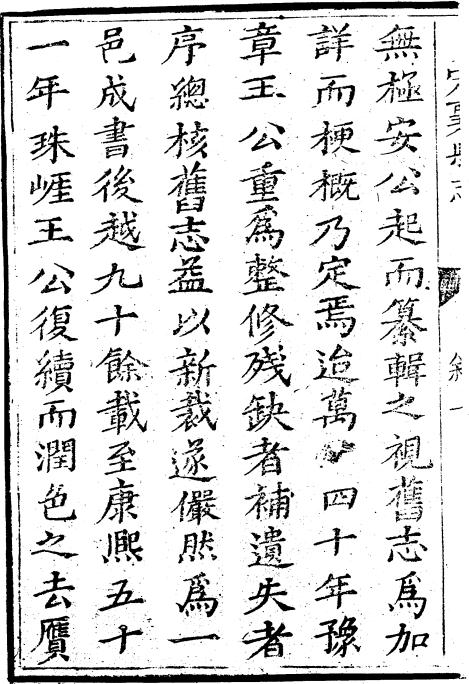 無極安公起而纂輯之視舊志爲加
詳而梗概乃定焉迨萬四十年豫
章王公重爲整修殘缺者補遺失者
序總核舊志益以新裁遂儼然爲一
邑成書後越九十餘載至康熙五十
一年珠崕王公復續而潤色之去贋